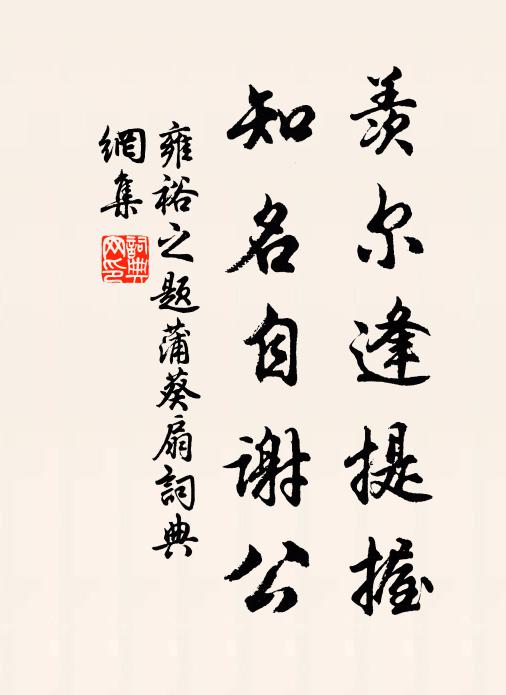 羨尔逢提握
知名自谢公
雍裕之题蒲葵扇詞典
網集
詞典
网印